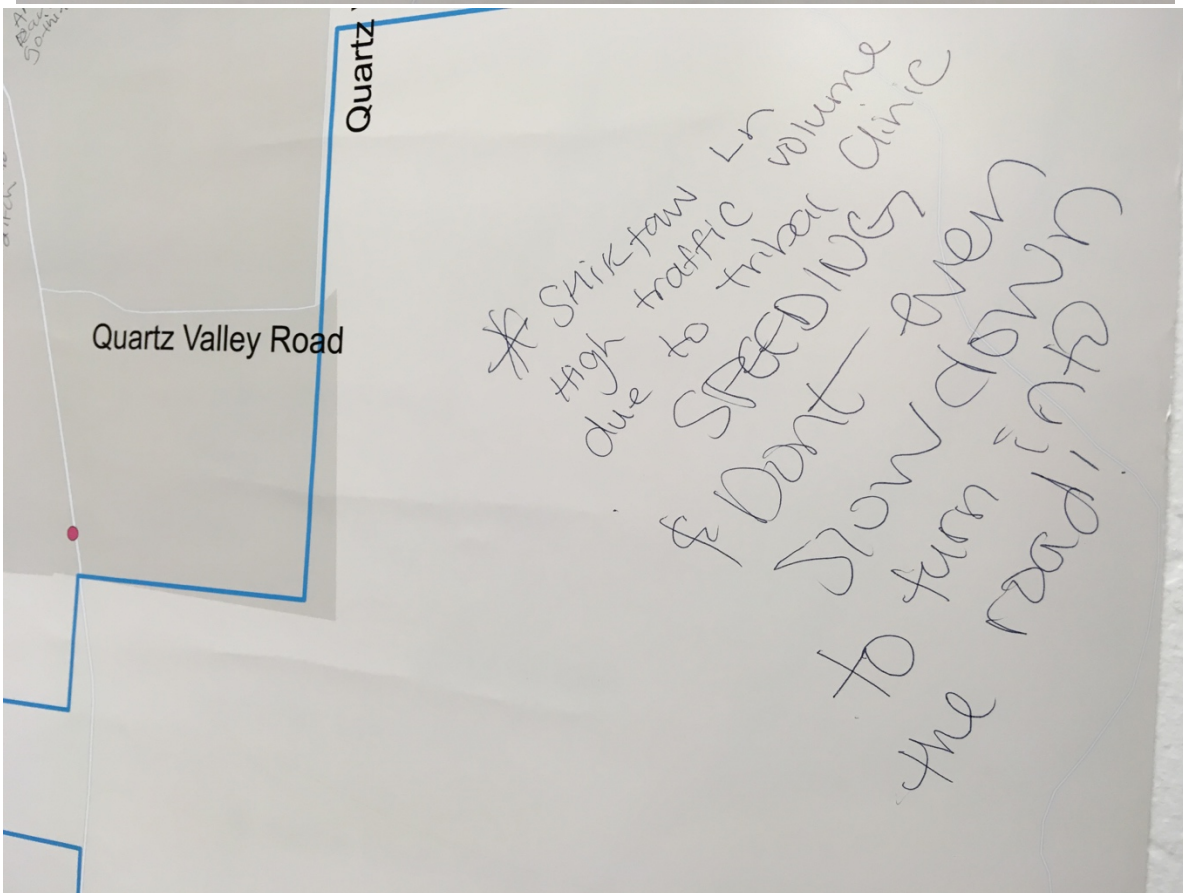 Quartz
Quartz Valley Road
* Shiktaw Ln
High traffic volume
due to tribal Clinic
SPEEDING
& Dont even
slow down
to turn into
the road
ditch to